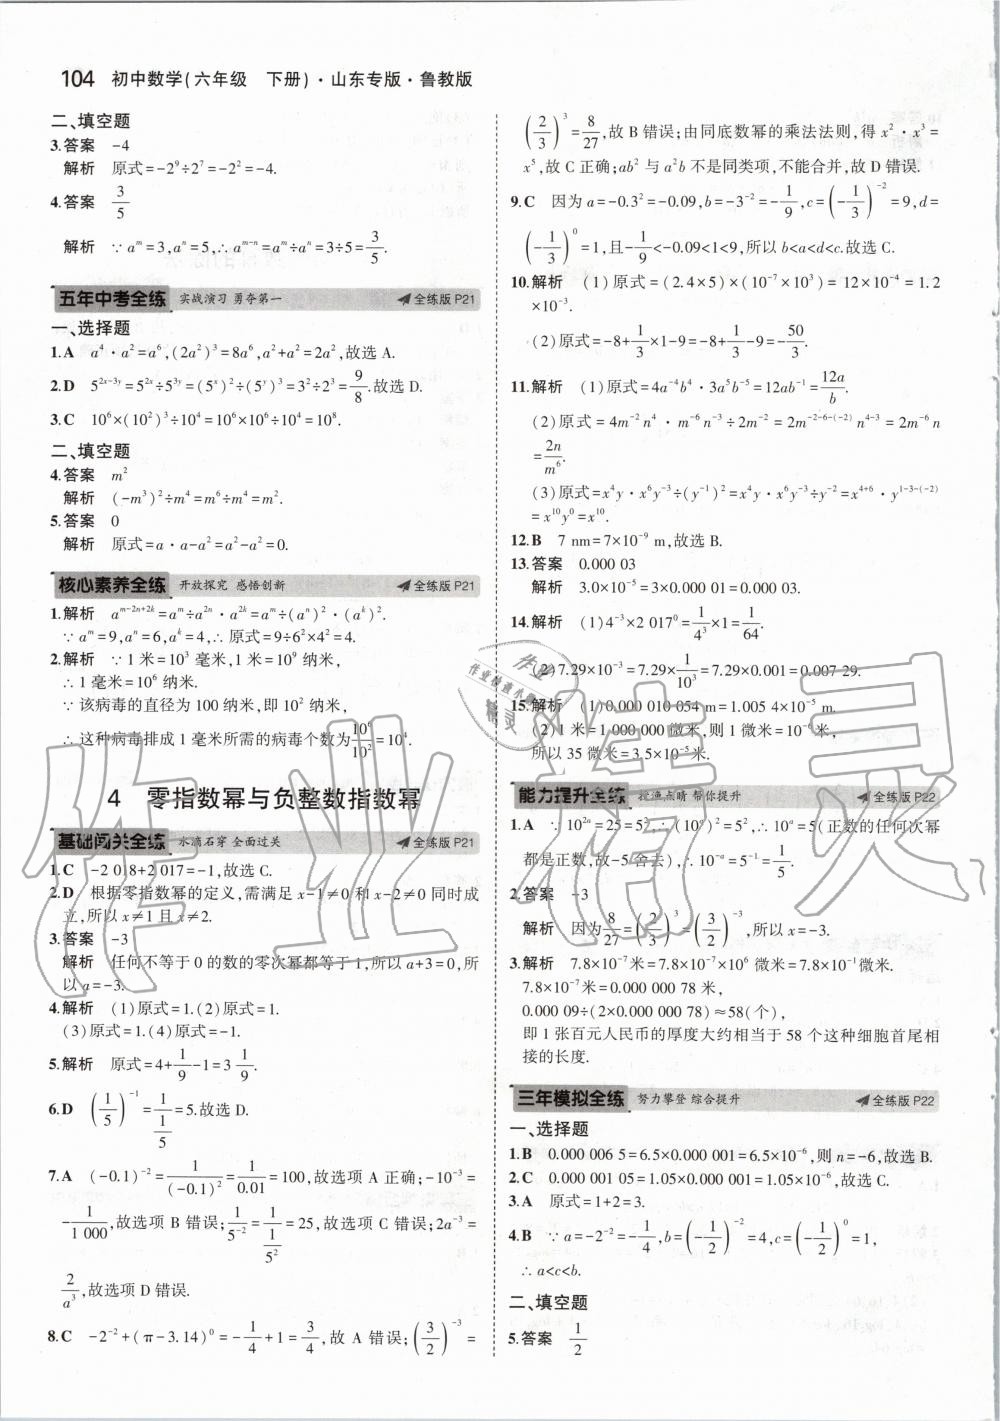 104 初中数学(六年级 下册)·山东专版·鲁教版
二、填空题
3.答案 -4
解析 原式=-2⁹÷2⁷=-2²=-4.
4.答案 3/5
解析 ∵aᵐ=3,aⁿ=5,∴aᵐ⁻ⁿ=aᵐ÷aⁿ=3÷5=3/5.
五年中考全练 实战演习 勇夺第一 全练版 P21
一、选择题
1.A a⁴·a²=a⁶,(2a²)³=8a⁶,a²+a²=2a²,故选 A.
2.D 5²ˣ⁻³ʸ=5²ˣ÷5³ʸ=(5ˣ)²÷(5ʸ)³=3²÷2³=9/8.故选 D.
3.C 10⁶×(10²)³÷10⁴=10⁶×10⁶÷10⁴=10⁸.
二、填空题
4.答案 m²
解析 (-m³)²÷m⁴=m⁶÷m⁴=m².
5.答案 0
解析 原式=a·a-a²=a²-a²=0.
核心素养全练 开放探究 感悟创新 全练版 P21
1.解析 aᵐ⁻²ⁿ⁺²ᵏ=aᵐ÷a²ⁿ·a²ᵏ=aᵐ÷(aⁿ)²·(aᵏ)².
∵aᵐ=9,aⁿ=6,aᵏ=4,∴原式=9÷6²×4²=4.
2.解析 ∵1 米=10³ 毫米,1 米=10⁹ 纳米,
∴1 毫米=10⁶ 纳米.
∵该病毒的直径为 100 纳米,即 10² 纳米,
∴这种病毒排成 1 毫米所需的病毒个数为10⁶/10²=10⁴.
4 零指数幂与负整数指数幂
基础闯关全练 水滴石穿 全面过关 全练版 P21
1.C -2 018+2 017=-1,故选 C.
2.D 根据零指数幂的定义,需满足 x-1≠0 和 x-2≠0 同时成
立,所以 x≠1 且 x≠2.
3.答案 -3
解析 任何不等于 0 的数的零次幂都等于 1,所以 a+3=0,所
以 a=-3.
4.解析 (1)原式=1.(2)原式=1.
(3)原式=1.(4)原式=-1.
5.解析 原式=4+1/9-1=3 1/9.
6.D (1/5)⁻¹=1/(1/5)=5.故选 D.
7.A (-0.1)⁻²=1/(-0.1)²=1/0.01=100,故选项 A 正确;-10⁻³=
-1/1 000,故选项 B 错误;1/5⁻²=1/(1/5²)=25,故选项 C 错误;2a⁻³=
2/a³,故选项 D 错误.
8.C -2⁻²+(π-3.14)⁰=-1/4+1=3/4,故 A 错误;(3/2)⁻³=
(2/3)³=8/27,故 B 错误;由同底数幂的乘法法则,得 x²·x³=
x⁵,故 C 正确;ab² 与 a²b 不是同类项,不能合并,故 D 错误.
9.C 因为 a=-0.3²=-0.09,b=-3⁻²=-1/9,c=(-1/3)⁻²=9,d=
(-1/3)⁰=1,且-1/9<-0.09<1<9,所以 b<a<d<c.故选 C.
10.解析 (1)原式=(2.4×5)×(10⁻⁷×10³)=12×10⁻⁴=1.2
×10⁻³.
(2)原式=-8+1/3×1-9=-8+1/3-9=-50/3.
11.解析 (1)原式=4a⁻⁴b⁴·3a⁵b⁻⁵=12ab⁻¹=12a/b.
(2)原式=4m⁻²n⁴·m⁻⁶n⁻³÷2m⁻²=2m⁻²⁻⁶⁻⁽⁻²⁾n⁴⁻³=2m⁻⁶n
=2n/m⁶.
(3)原式=x⁴y·x⁶y⁻³÷(y⁻¹)²=x⁴y·x⁶y⁻³÷y⁻²=x⁴⁺⁶·y¹⁻³⁻⁽⁻²⁾
=x¹⁰y⁰=x¹⁰.
12.B 7 nm=7×10⁻⁹ m,故选 B.
13.答案 0.000 03
解析 3.0×10⁻⁵=3×0.000 01=0.000 03.
14.解析 (1)4⁻³×2 017⁰=1/4³×1=1/64.
(2)7.29×10⁻³=7.29×1/10³=7.29×0.001=0.007 29.
15.解析 (1)0.000 010 054 m=1.005 4×10⁻⁵ m.
(2)1 米=1 000 000 微米,则 1 微米=1×10⁻⁶米,
所以 35 微米=3.5×10⁻⁵米.
能力提升全练 授渔点睛 帮你提升 全练版 P22
1.A ∵10²ᵃ=25=5²,∴(10ᵃ)²=5²,∴10ᵃ=5(正数的任何次幂
都是正数,故-5 舍去),∴10⁻ᵃ=5⁻¹=1/5.
2.答案 -3
解析 因为8/27=(2/3)³=(3/2)⁻³,所以 x=-3.
3.解析 7.8×10⁻⁷米=7.8×10⁻⁷×10⁶ 微米=7.8×10⁻¹微米.
7.8×10⁻⁷米=0.000 000 78 米,
0.000 09÷(2×0.000 000 78)≈58(个),
即 1 张百元人民币的厚度大约相当于 58 个这种细胞首尾相
接的长度.
三年模拟全练 努力攀登 综合提升 全练版 P22
一、选择题
1.B 0.000 006 5=6.5×0.000 001=6.5×10⁻⁶,则 n=-6,故选 B.
2.C 0.000 001 05=1.05×0.000 001=1.05×10⁻⁶,故选 C.
3.A 原式=1+2=3.
4.B ∵a=-2⁻²=-1/4,b=(-1/2)⁻²=4,c=(-1/2)⁰=1,
∴a<c<b.
二、填空题
5.答案 1/2
作业精灵
作业
作业检查小助手
精灵